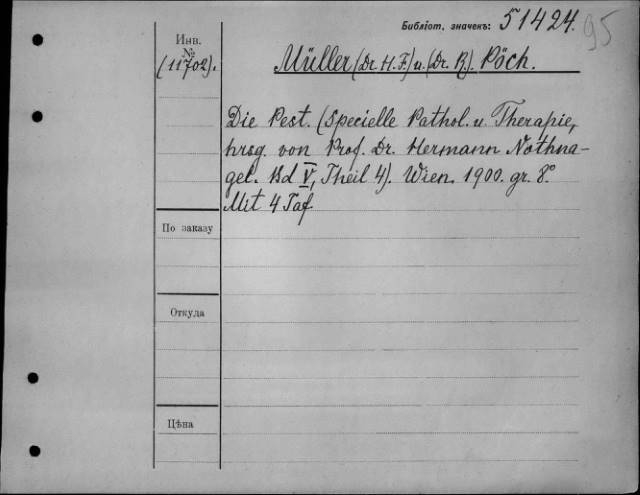 Библіот. значекъ: 51424.
95
Инв.
№
(11702).
Müller (Dr. H. F.) u. (Dr. R.) Pöch.
Die Pest. (Specielle Pathol. u. Therapie,
hrsg. von Prof. Dr. Hermann Nothna-
gel. Bd V, Theil 4). Wien. 1900. gr. 8°
Mit 4 Taf
По заказу
Откуда
Цѣна